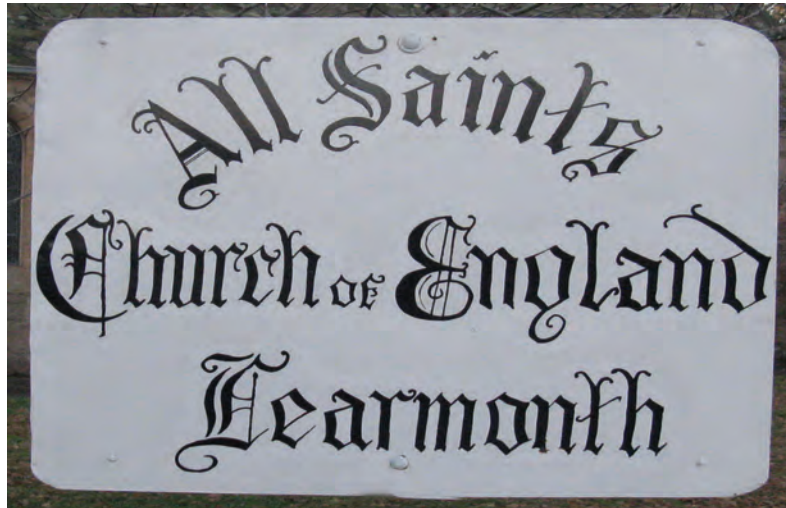 All Saints
Church of England
Learmonth